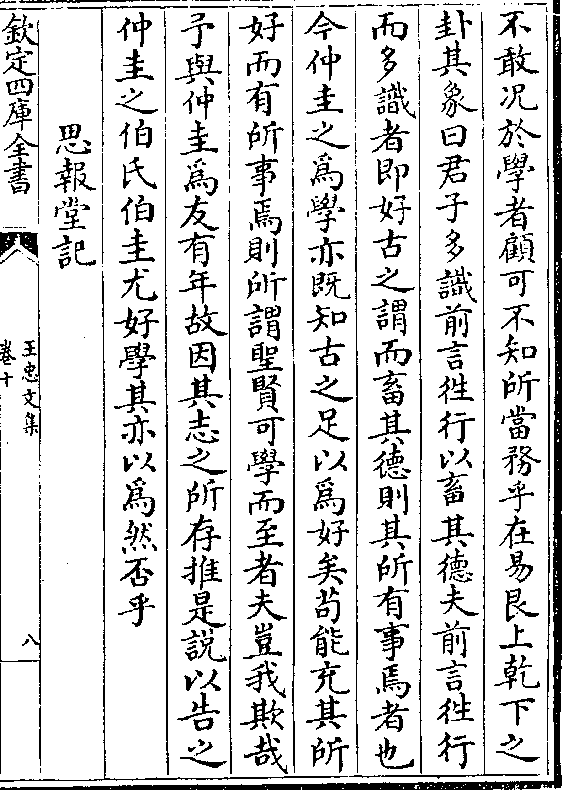 不敢况於學者顧可不知所當務乎在易艮上乾下之
卦其象曰君子多識前言徃行以畜其德夫前言徃行
而多識者即好古之謂而畜其德則其所有事焉者也
今仲圭之為學亦既知古之足以為好矣苟能充其所
好而有所事焉則所謂聖賢可學而至者夫豈我欺哉
予與仲圭為友有年故因其志之所存推是説以告之
仲圭之伯氏伯圭尤好學其亦以為然否乎
思報堂記
欽定四庫全書
王忠文集
卷十
八